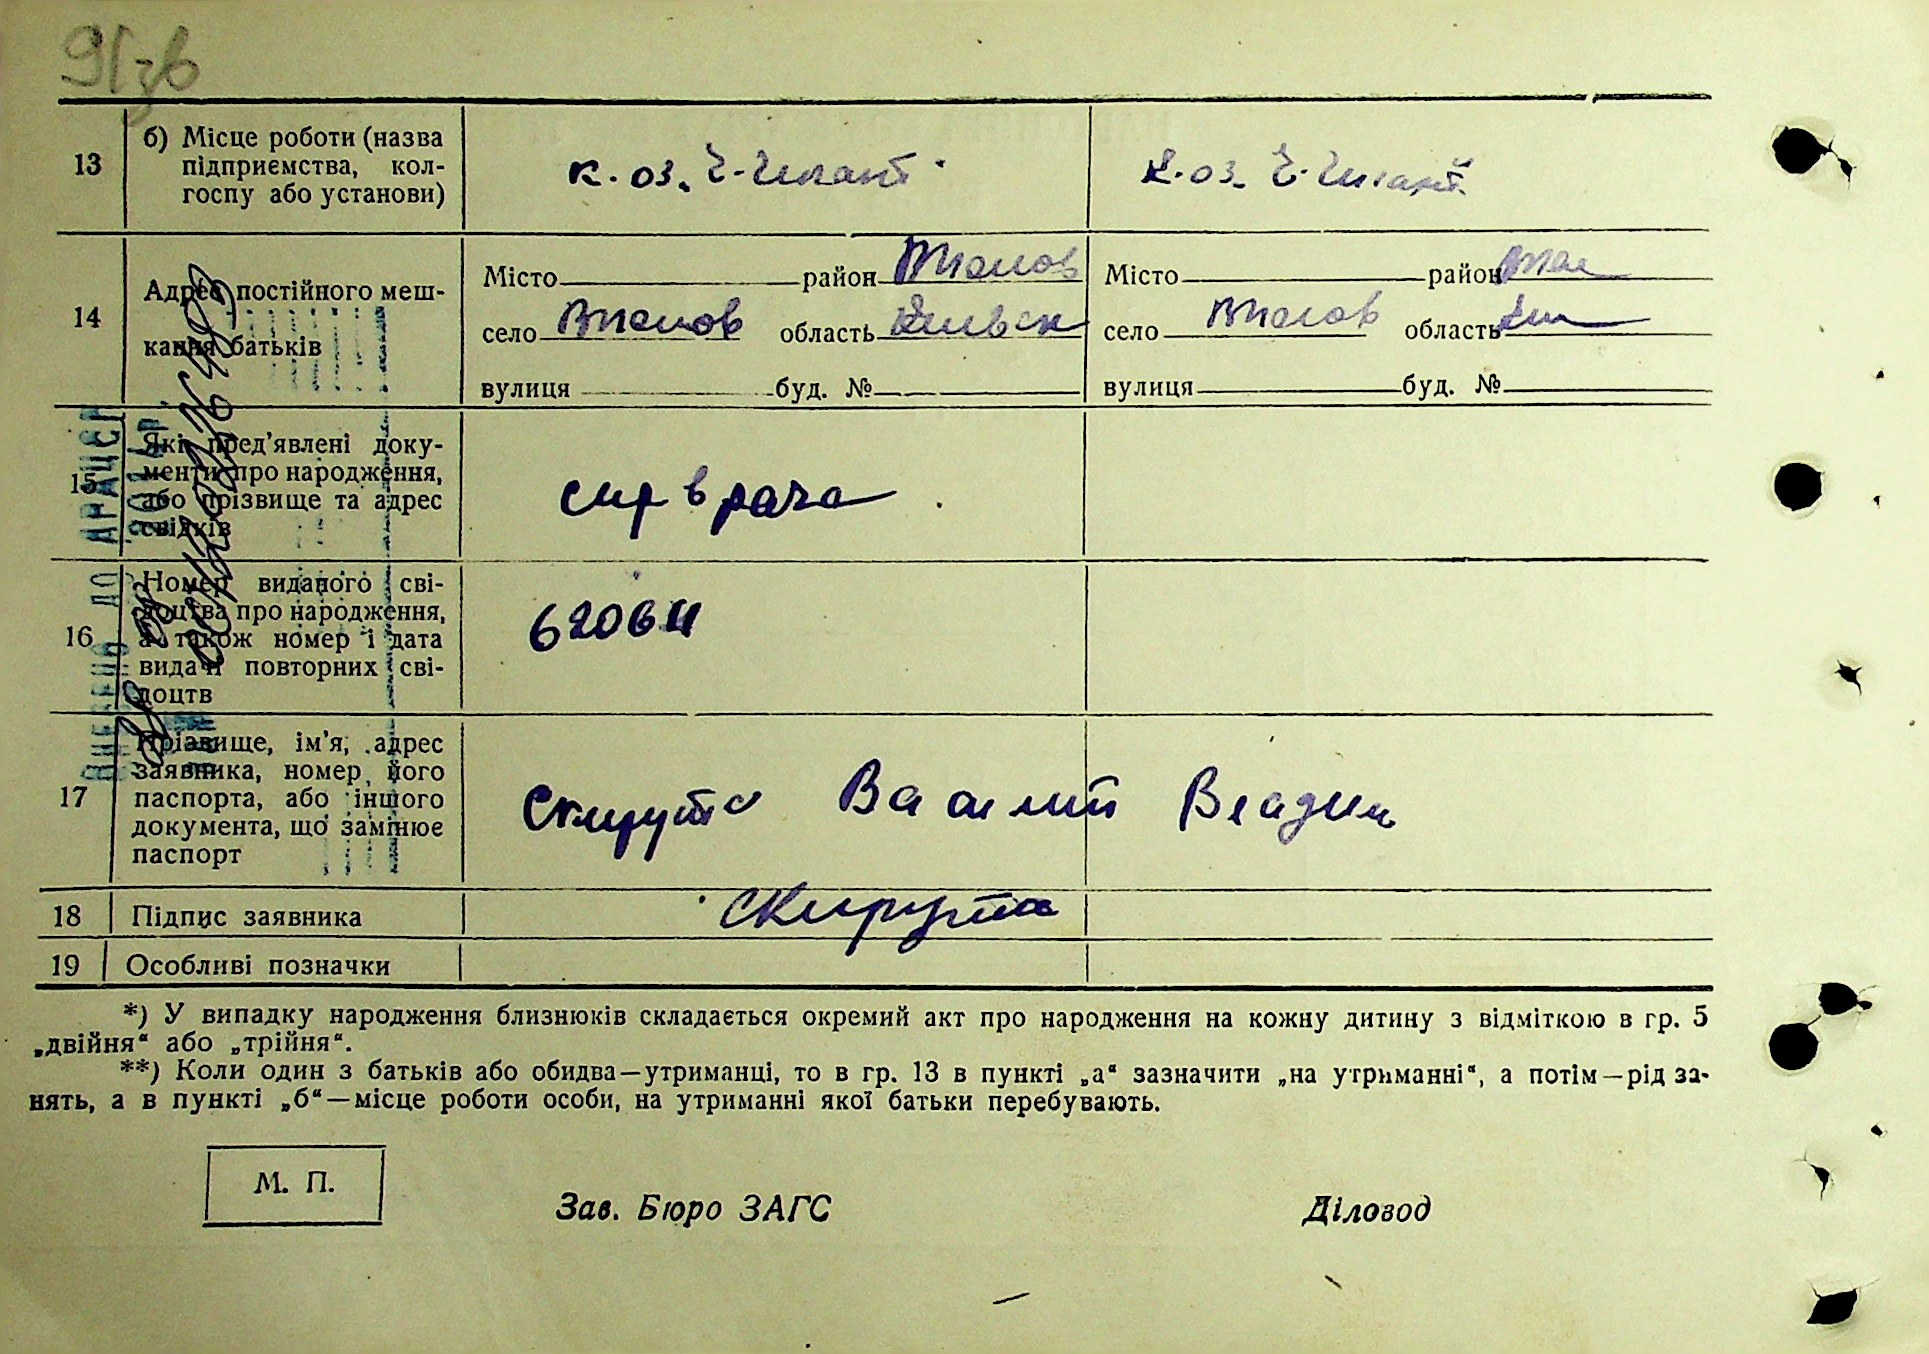 91зв
13
б) Місце роботи (назва
підприємства, кол-
госпу або установи)
к. оз.
к. оз.
14
Адрес постійного меш-
кання батьків
Місто район
село область
вулиця буд. №
Місто район
село область
вулиця буд. №
15
Які пред'явлені доку-
менти про народження,
або прізвище та адрес
свідків
спр врача
16
Номер виданого сві-
доцтва про народження,
а також номер і дата
видачі повторних сві-
доцтв
17
Прізвище, ім'я, адрес
заявника, номер його
паспорта, або іншого
документа, що замінює
паспорт
Скирута Василий Владим
18
Підпис заявника
Скирута
19
Особливі позначки
*) У випадку народження близнюків складається окремий акт про народження на кожну дитину з відміткою в гр. 5
„двійня“ або „трійня“.
**) Коли один з батьків або обидва—утриманці, то в гр. 13 в пункті „а“ зазначити „на утриманні“, а потім—рід за-
нять, а в пункті „б“—місце роботи особи, на утриманні якої батьки перебувають.
М. П.
Зав. Бюро ЗАГС
Діловод
ВНЕСЕНО ДО ДРАЦСГ